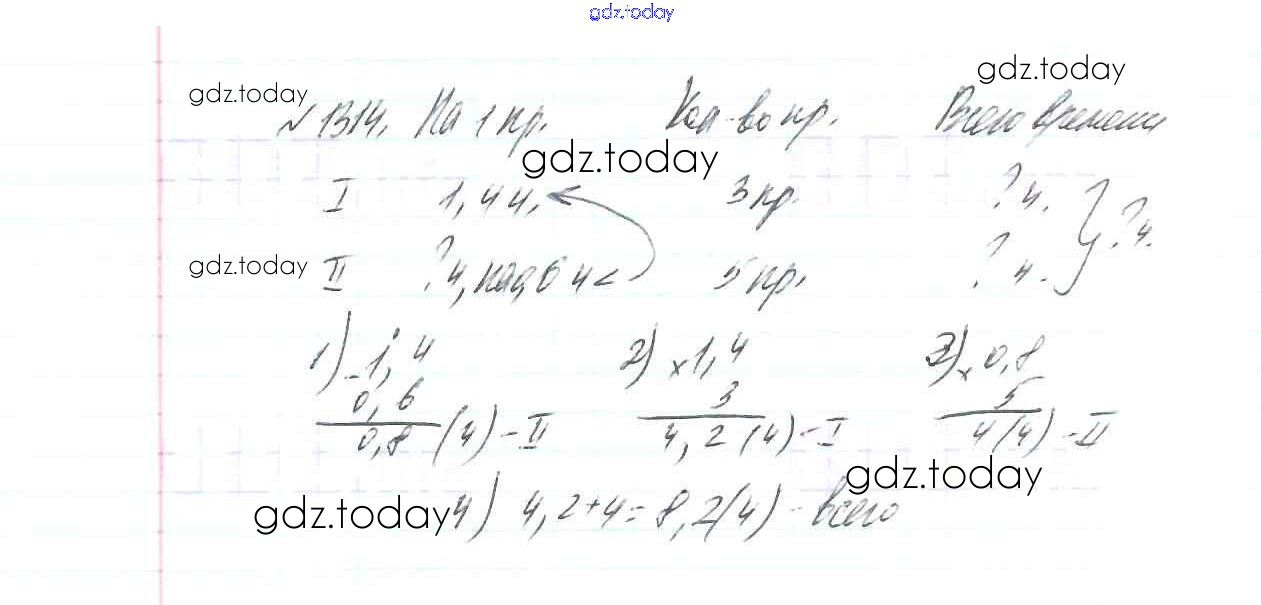 gdz.today
gdz.today
gdz.today
№1314. На 1 пр. Кол-во пр. Всего времени
gdz.today
I 1,4 ч. 3 пр. ? ч.
? ч.
gdz.today
II ? ч, на 0,6 ч < 5 пр. ? ч.
1) - 1,4 2) × 1,4 3) × 0,8
0,6 3 5
0,8 (ч) - II 4,2 (ч) - I 4 (ч) - II
gdz.today
gdz.today
4) 4,2+4=8,2(ч) - всего